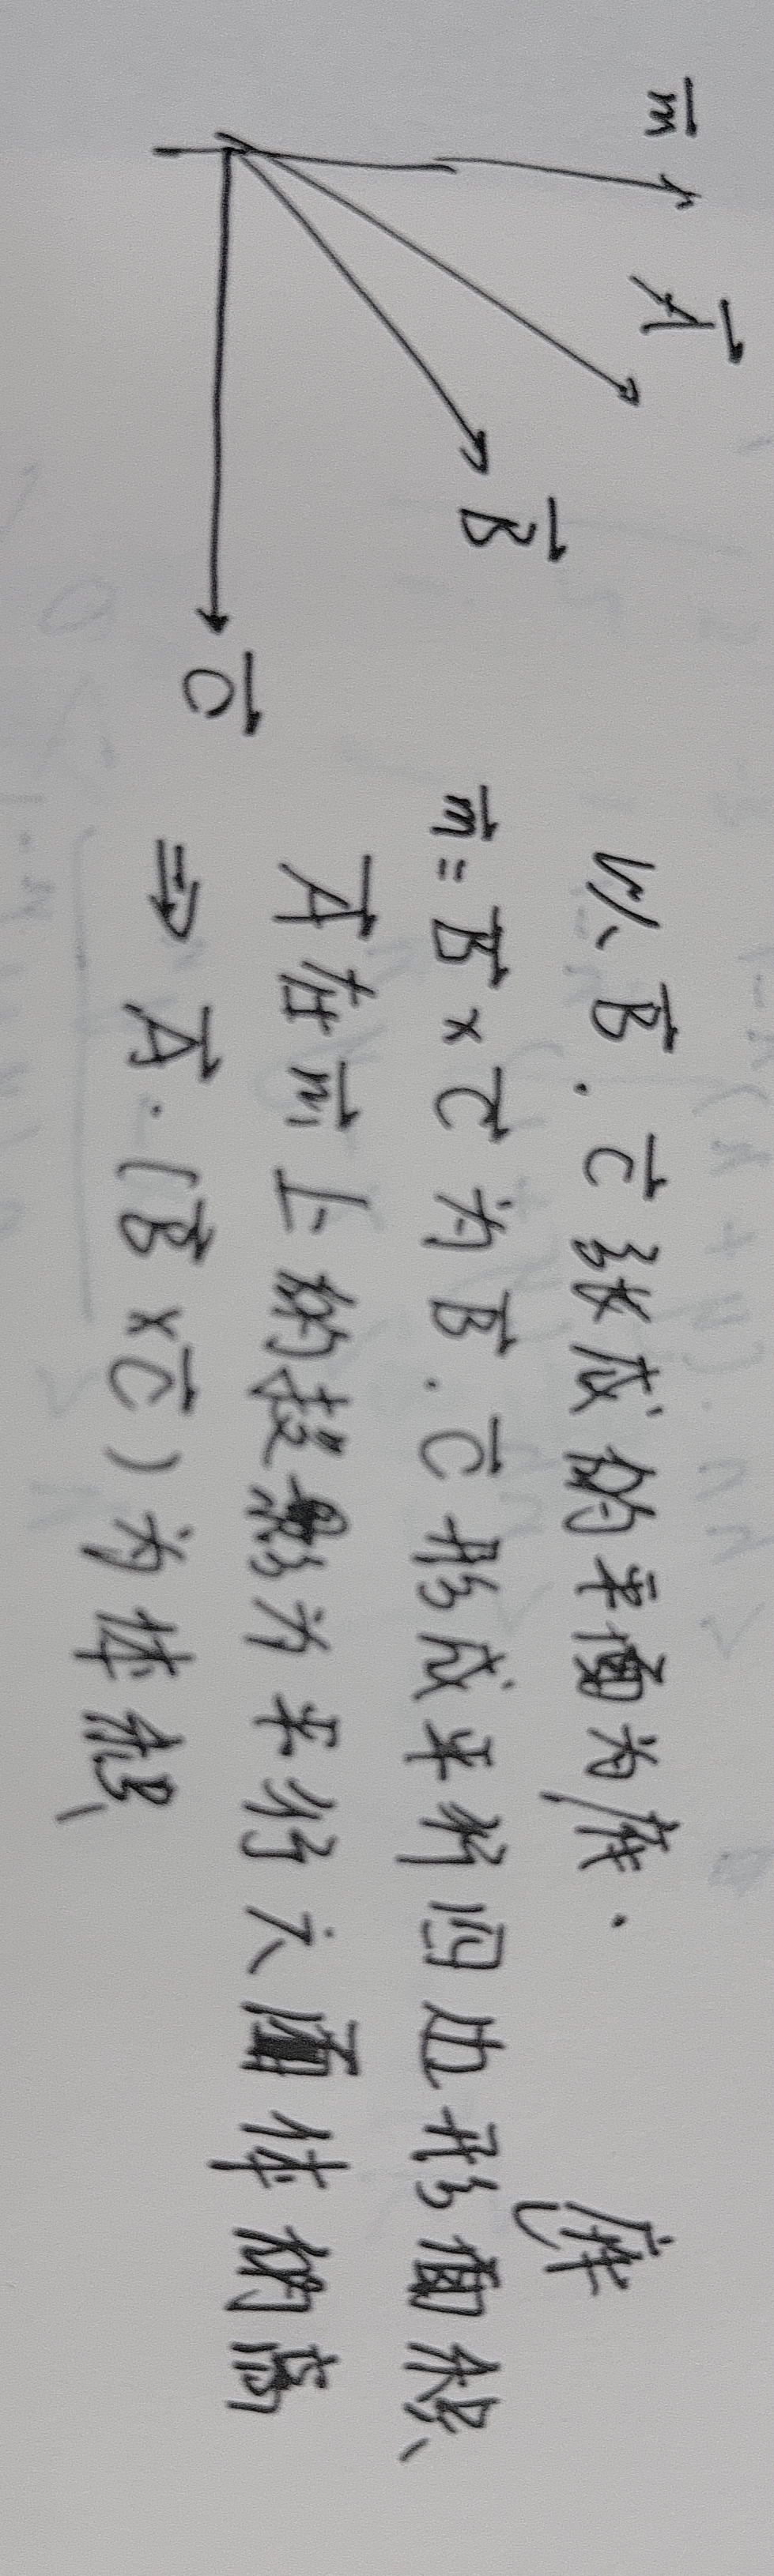 m⃗
A⃗
B⃗
C⃗
以 B⃗. C⃗ 张成的平面为底.
m⃗ = B⃗ × C⃗ 为 B⃗. C⃗ 形成平行四边形面积
A⃗ 在 m⃗ 上的投影为平行六面体的高
⇒ A⃗ · (B⃗ × C⃗) 为体积